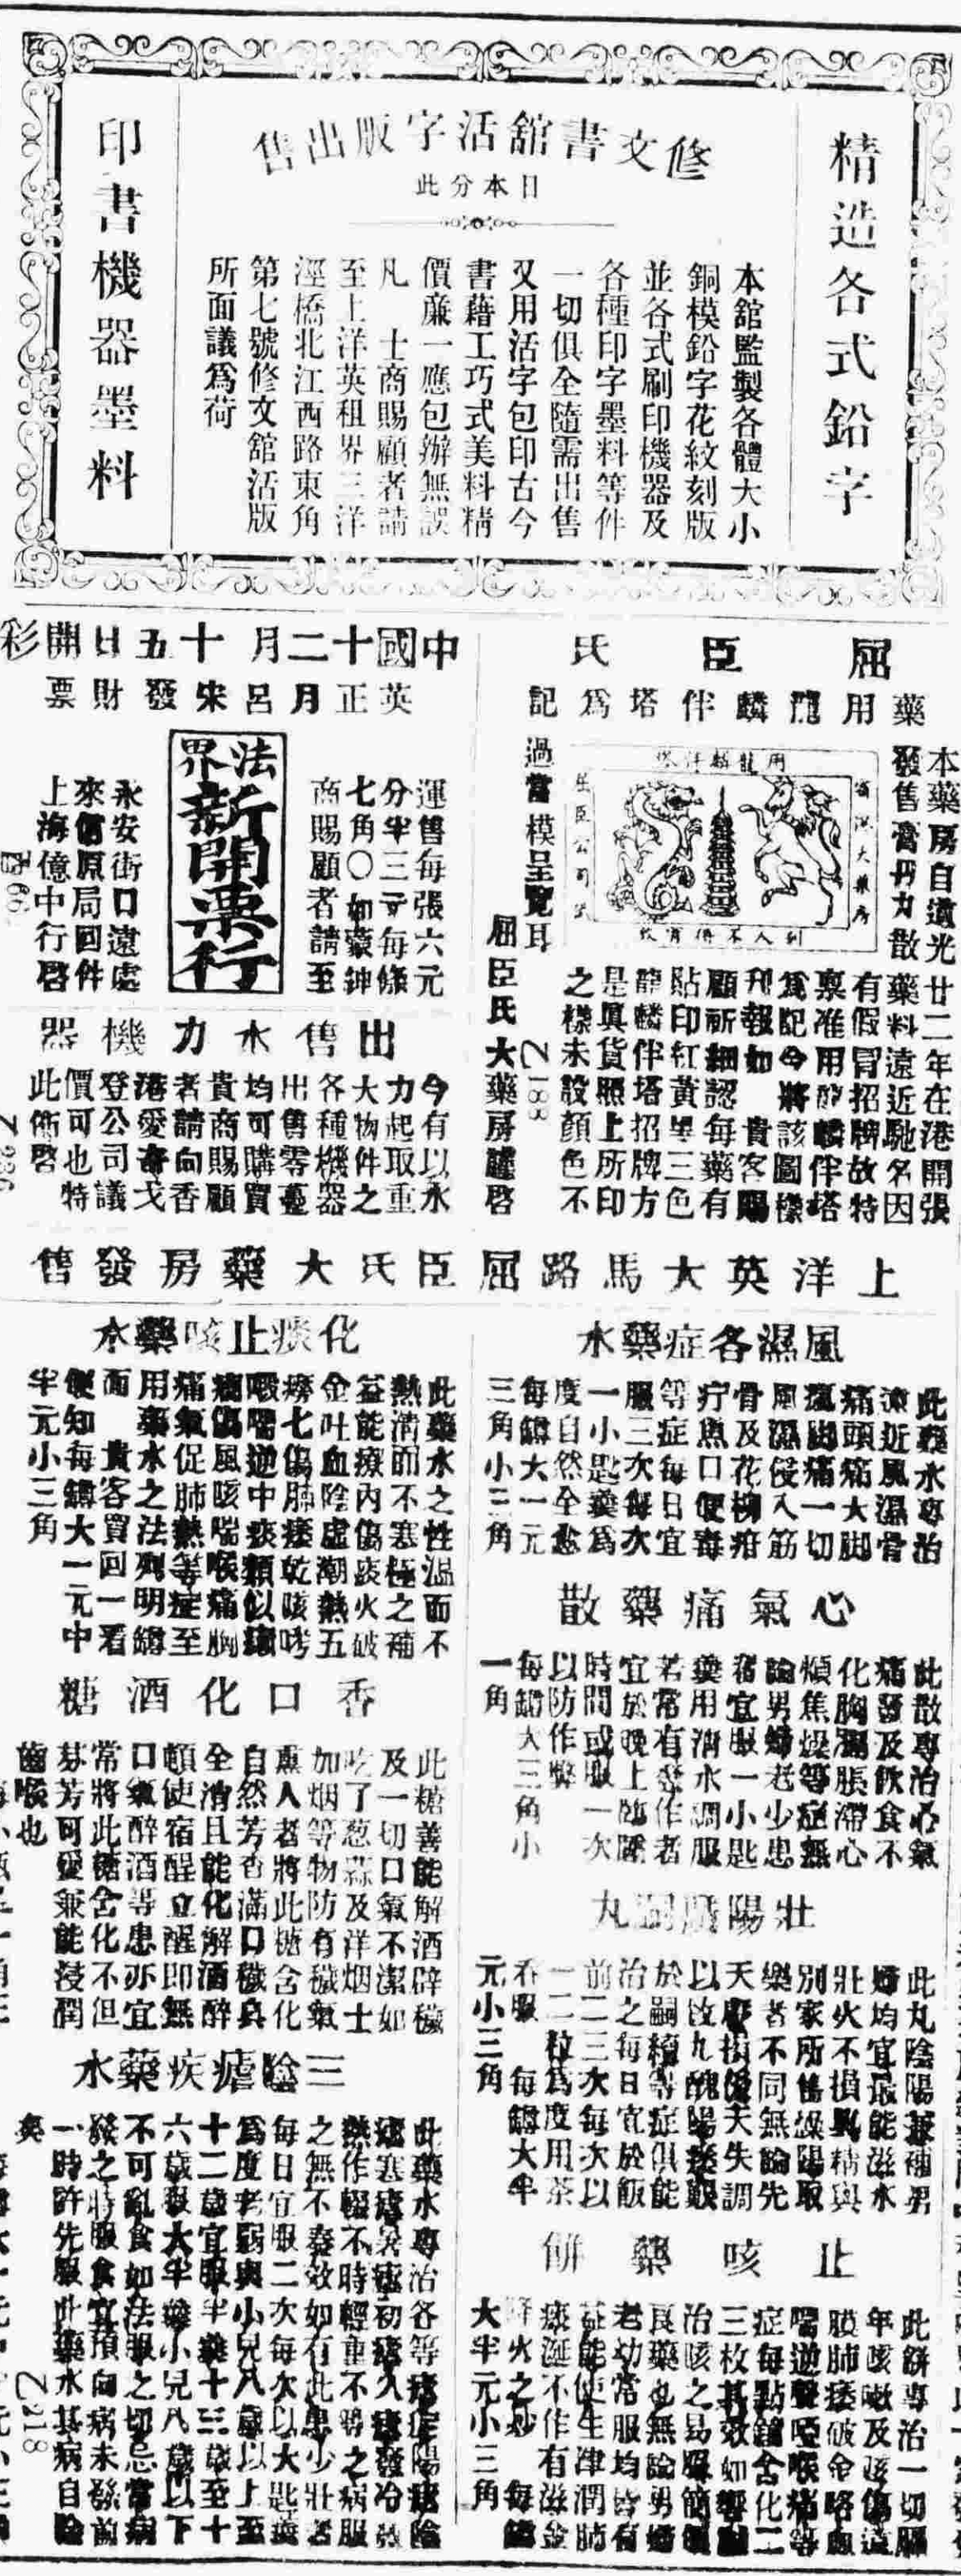 精造各式鉛字
修文書舘活字版出售
日本分此
本舘監製各體大小
銅模鉛字花紋刻版
並各式刷印機器及
各種印字墨料等件
一切俱全隨需出售
又用活字包印古今
書藉工巧式美料精
價廉一應包辦無誤
凡　士商賜顧者請
至上洋英租界三洋
涇橋北江西路東角
第七號修文舘活版
所面議爲荷
印書機器墨料
屈臣氏
藥用龍麟伴塔爲記
本藥房自道光
廿二年在港開張
發售膏丹丸散
藥料遠近馳名因
有假冒招牌故特
禀准用龍麟伴塔
爲記今將該圖樣
刊報如　貴客賜
顧祈細認每藥有
貼印紅黃黑三色
龍麟伴塔招牌方
是真貨照上所印
之樣未設顏色不
過當模呈覽耳
屈臣氏大藥房謹啓
Z188
中國十二月十五日開彩
英正月呂宋發財票
運售每張六元
分半三元每條
七角〇如蒙紳
商賜顧者請至
法界
新開票行
永安街口遠處
來信原局回件
上海億中行啓
出售水力機器
今有以水
力起取重
大物件之
各種機器
出售零躉
均可購買
貴商賜顧
者請向香
港愛奇戈
登公司議
價可也特
此佈啓
上洋英大馬路屈臣氏大藥房發售
風濕各症藥水
此藥水專治
遠近風濕骨
痛頭痛大脚
瘋脚痛一切
風濕侵入筋
骨及花柳疳
疔魚口便毒
等症每日宜
服三次每次
一小匙羹爲
度自然全愈
每罇大一元
三角小三角
心氣痛藥散
此散專治心氣
痛發及飲食不
化胸膈脹滯心
煩焦燥等症無
論男婦老少患
者宜服一小匙
羹用清水調服
若常有發作者
宜於晚上臨睡
時間或服一次
以防作弊
每罇大三角小
一角
壯陽
丸
此丸陰陽兼補男
婦均宜最能滋水
壯火不損眞精與
別家所售燥陽取
樂者不同無論先
天虧損後天失調
以致九醜陽痿艱
於嗣續等症俱能
治之每日宜於飯
前二三次每次以
一二粒爲度用茶
吞服　每罇大半
元小三角
止咳藥餅
此餅專治一切
年咳嗽及
膜肺痿破金咯血
喘逆聲啞喉痛等
症每點鐘含化二
三枚其效如響
治咳之易服簡便
良藥也無論男婦
老幼常服均皆有
益能使生津潤肺
痰涎不作有滋金
降火之妙　每罇
大半元小三角
化痰止咳藥水
此藥水之性溫而不
熱清而不寒極之補
益能療內傷痰火破
金吐血陰虛潮熱五
癆七傷肺痿乾咳哮
喉喘逆中痰類似
傷風咳喘喉痛胸
痛氣促肺熱等症至
用藥水之法列明罇
面　貴客買回一看
便知每罇大一元中
半元小三角
香口化酒糖
此糖善能解酒辟穢
及一切口氣不潔如
吃了葱蒜及洋烟士
加烟等物防有穢氣
熏人者將此糖含化
自然芳香滿口穢臭
全清且能化解酒醉
頓使宿醒立醒即無
口氣醉酒等患亦宜
常將此糖含化不但
芬芳可愛兼能浸潤
齒喉也
三陰瘧疾藥水
此藥水專治各等瘧疾陽瘧陰
瘧寒瘧暑瘧初瘧久瘧發冷發
熱作輟不時輕重不等之病服
之無不奏效如有此患少壯者
每日宜服二次每次以大匙羹
爲度老弱與小兒八歲以上至
十二歲宜服半羹十三歲至十
六歲服大半羹小兒八歲以下
不可亂食如法服之切忌當病
發之時服食宜預向病未發前
一時許先服此藥水其病自除
矣
Z218